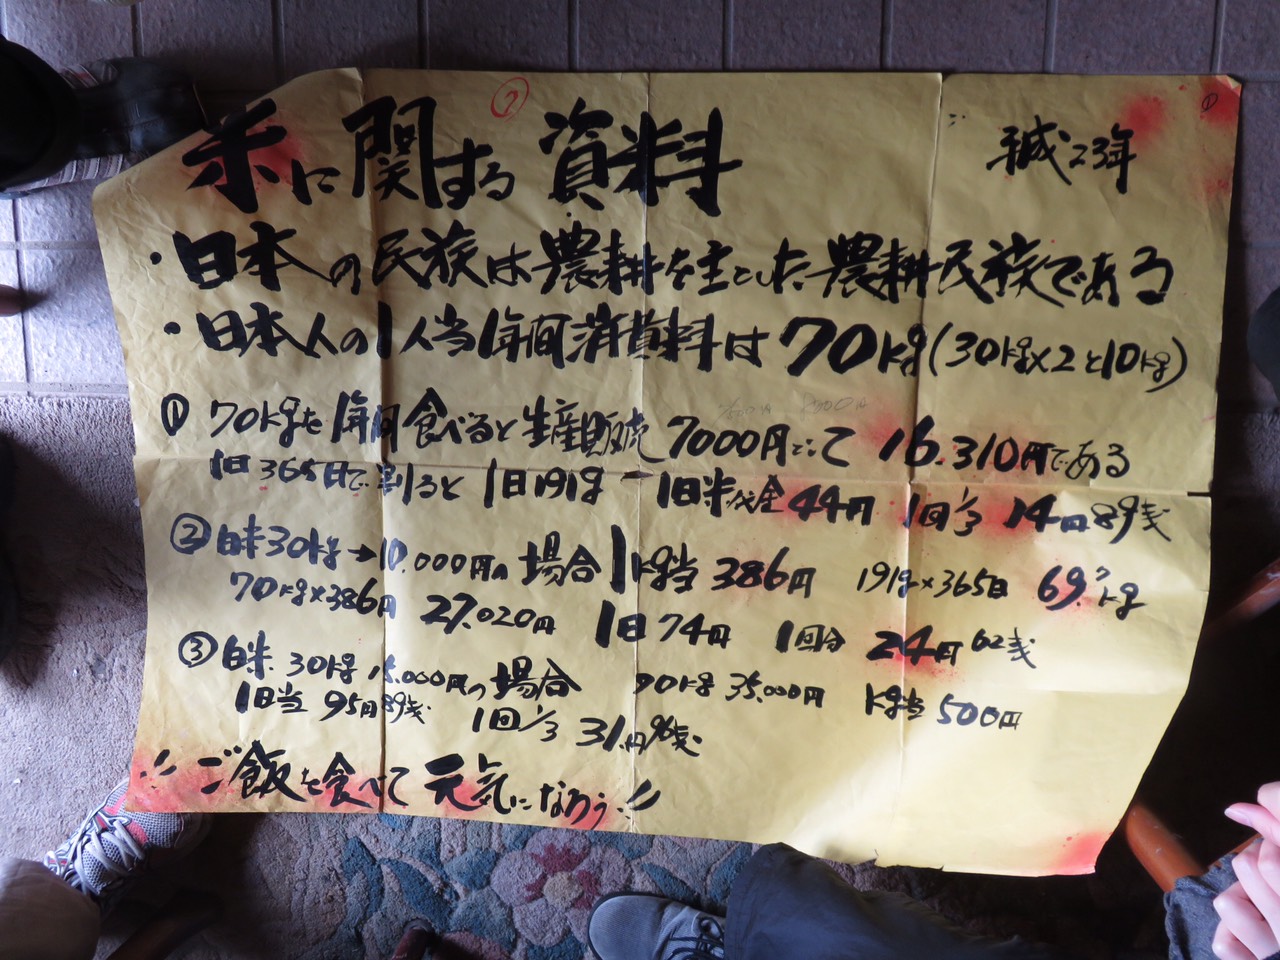 米に関する資料
平成23年
・日本の民族は農耕を主とした農耕民族である
・日本人の1人当1年間消費料は70kg(30kg×2と10kg)
① 70kgを1年間食べると生産販売7000円として16.310円である
1日365日で割ると1日191g 1日米代金44円 1回1/3 14円89銭
② 白米30kg→10.000円の場合1kg当386円 191g×365日 69.7kg
70kg×386円 27.020円 1日74円 1回分24円62銭
③ 白米30kg 15.000円の場合 70kg 35.000円 kg当500円
1日当95円89銭 1回1/3 31.円96銭
!!ご飯を食べて元気になろう!!